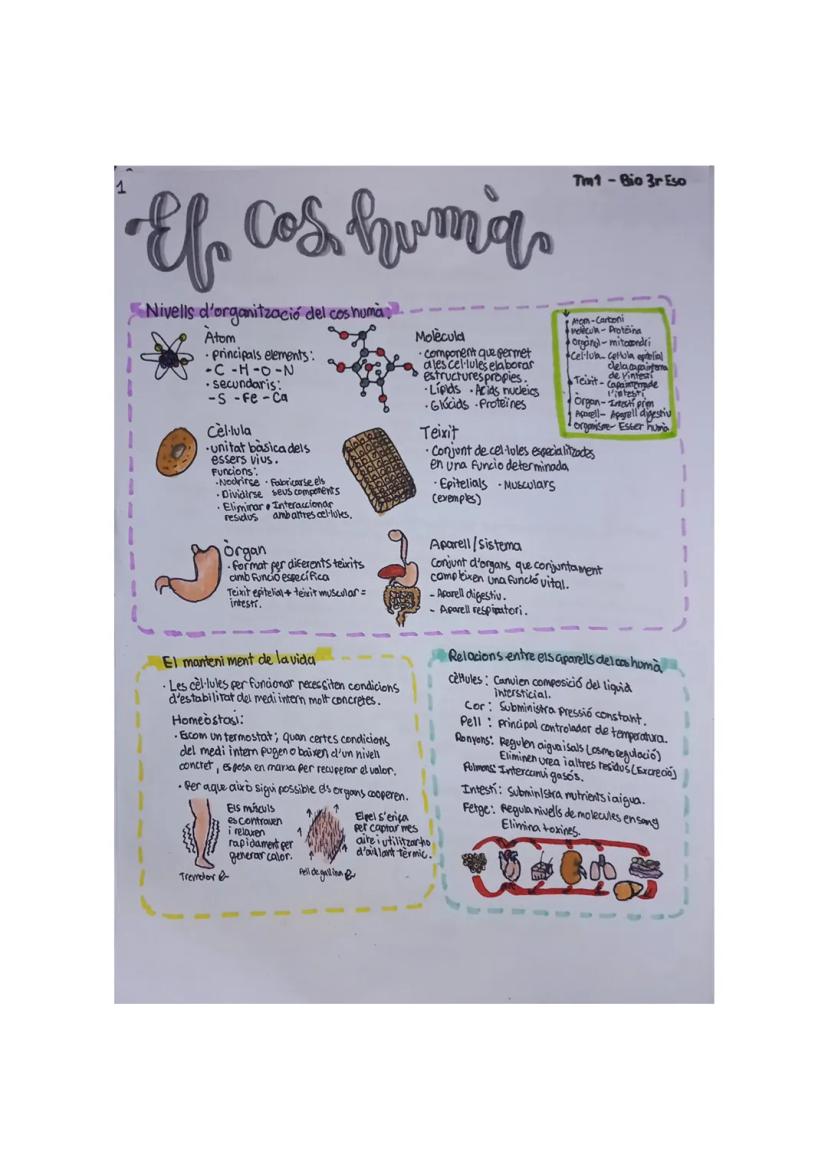 1
Tm1 - Bio 3r Eso
El cos humà
Nivells d'organització del cos humà:
Àtom
· principals elements:
- C - H - O - N
· secundaris:
- S - Fe - Ca
Molècula
· component que permet
a les cèl·lules elaborar
estructures propies.
· Lípids · Acids nucleics
· Glúcids · Proteïnes
Atom - Carboni
Molècula - Proteïna
Orgànul - mitocondri
Cel·lula - Cel·lula epitelial
de la capa interna
de l'intestí
Teixit - Capa interna de
l'intestí
Òrgan - Intestí prim
Aparell - Aparell digestiu
Organisme - Esser humà
Cèl·lula
· unitat bàsica dels
essers vius.
Funcions:
· Nodrirse · Fabricarse els
· Dividirse seus components
· Eliminar · Interaccionar
residus amb altres cel·lules.
Teixit
· Conjunt de cel·lules especialitzades
en una funcio determinada
· Epitelials · Musculars
(exemples)
Òrgan
· Format per diferents teixits
amb funció específica
Teixit epitelial + teixit muscular =
intestí.
Aparell/Sistema
Conjunt d'organs que conjuntament
compleixen una funció vital.
- Aparell digestiu.
- Aparell respiratori.
El manteniment de la vida
· Les cèl·lules per funcionar necessiten condicions
d'estabilitat del medi intern molt concretes.
Homeòstasi:
· Es com un termostat; quan certes condicions
del medi intern pugen o baixen d'un nivell
concret, es posa en marxa per recuperar el valor.
· Per a que això sigui possible els organs cooperen.
Els músculs
es contrauen
i relaxen
rapidament per
generar calor.
Tremolor
El pel s'eriça
per captar mes
aire i utilitzar-ho
d'aïllant tèrmic.
Pell de gallina
Relacions entre els aparells del cos humà
cèl·lules: Canvien composició del liquid
intersticial.
Cor: Subministra pressió constant.
Pell: Principal controlador de temperatura.
Ronyons: Regulen aigua i sals (osmoregulació)
Eliminen urea i altres residus (Excreció)
Pulmons: Intercanvi gasós.
Intestí: Subministra nutrients i aigua.
Fetge: Regula nivells de molecules en sang
Elimina toxines.